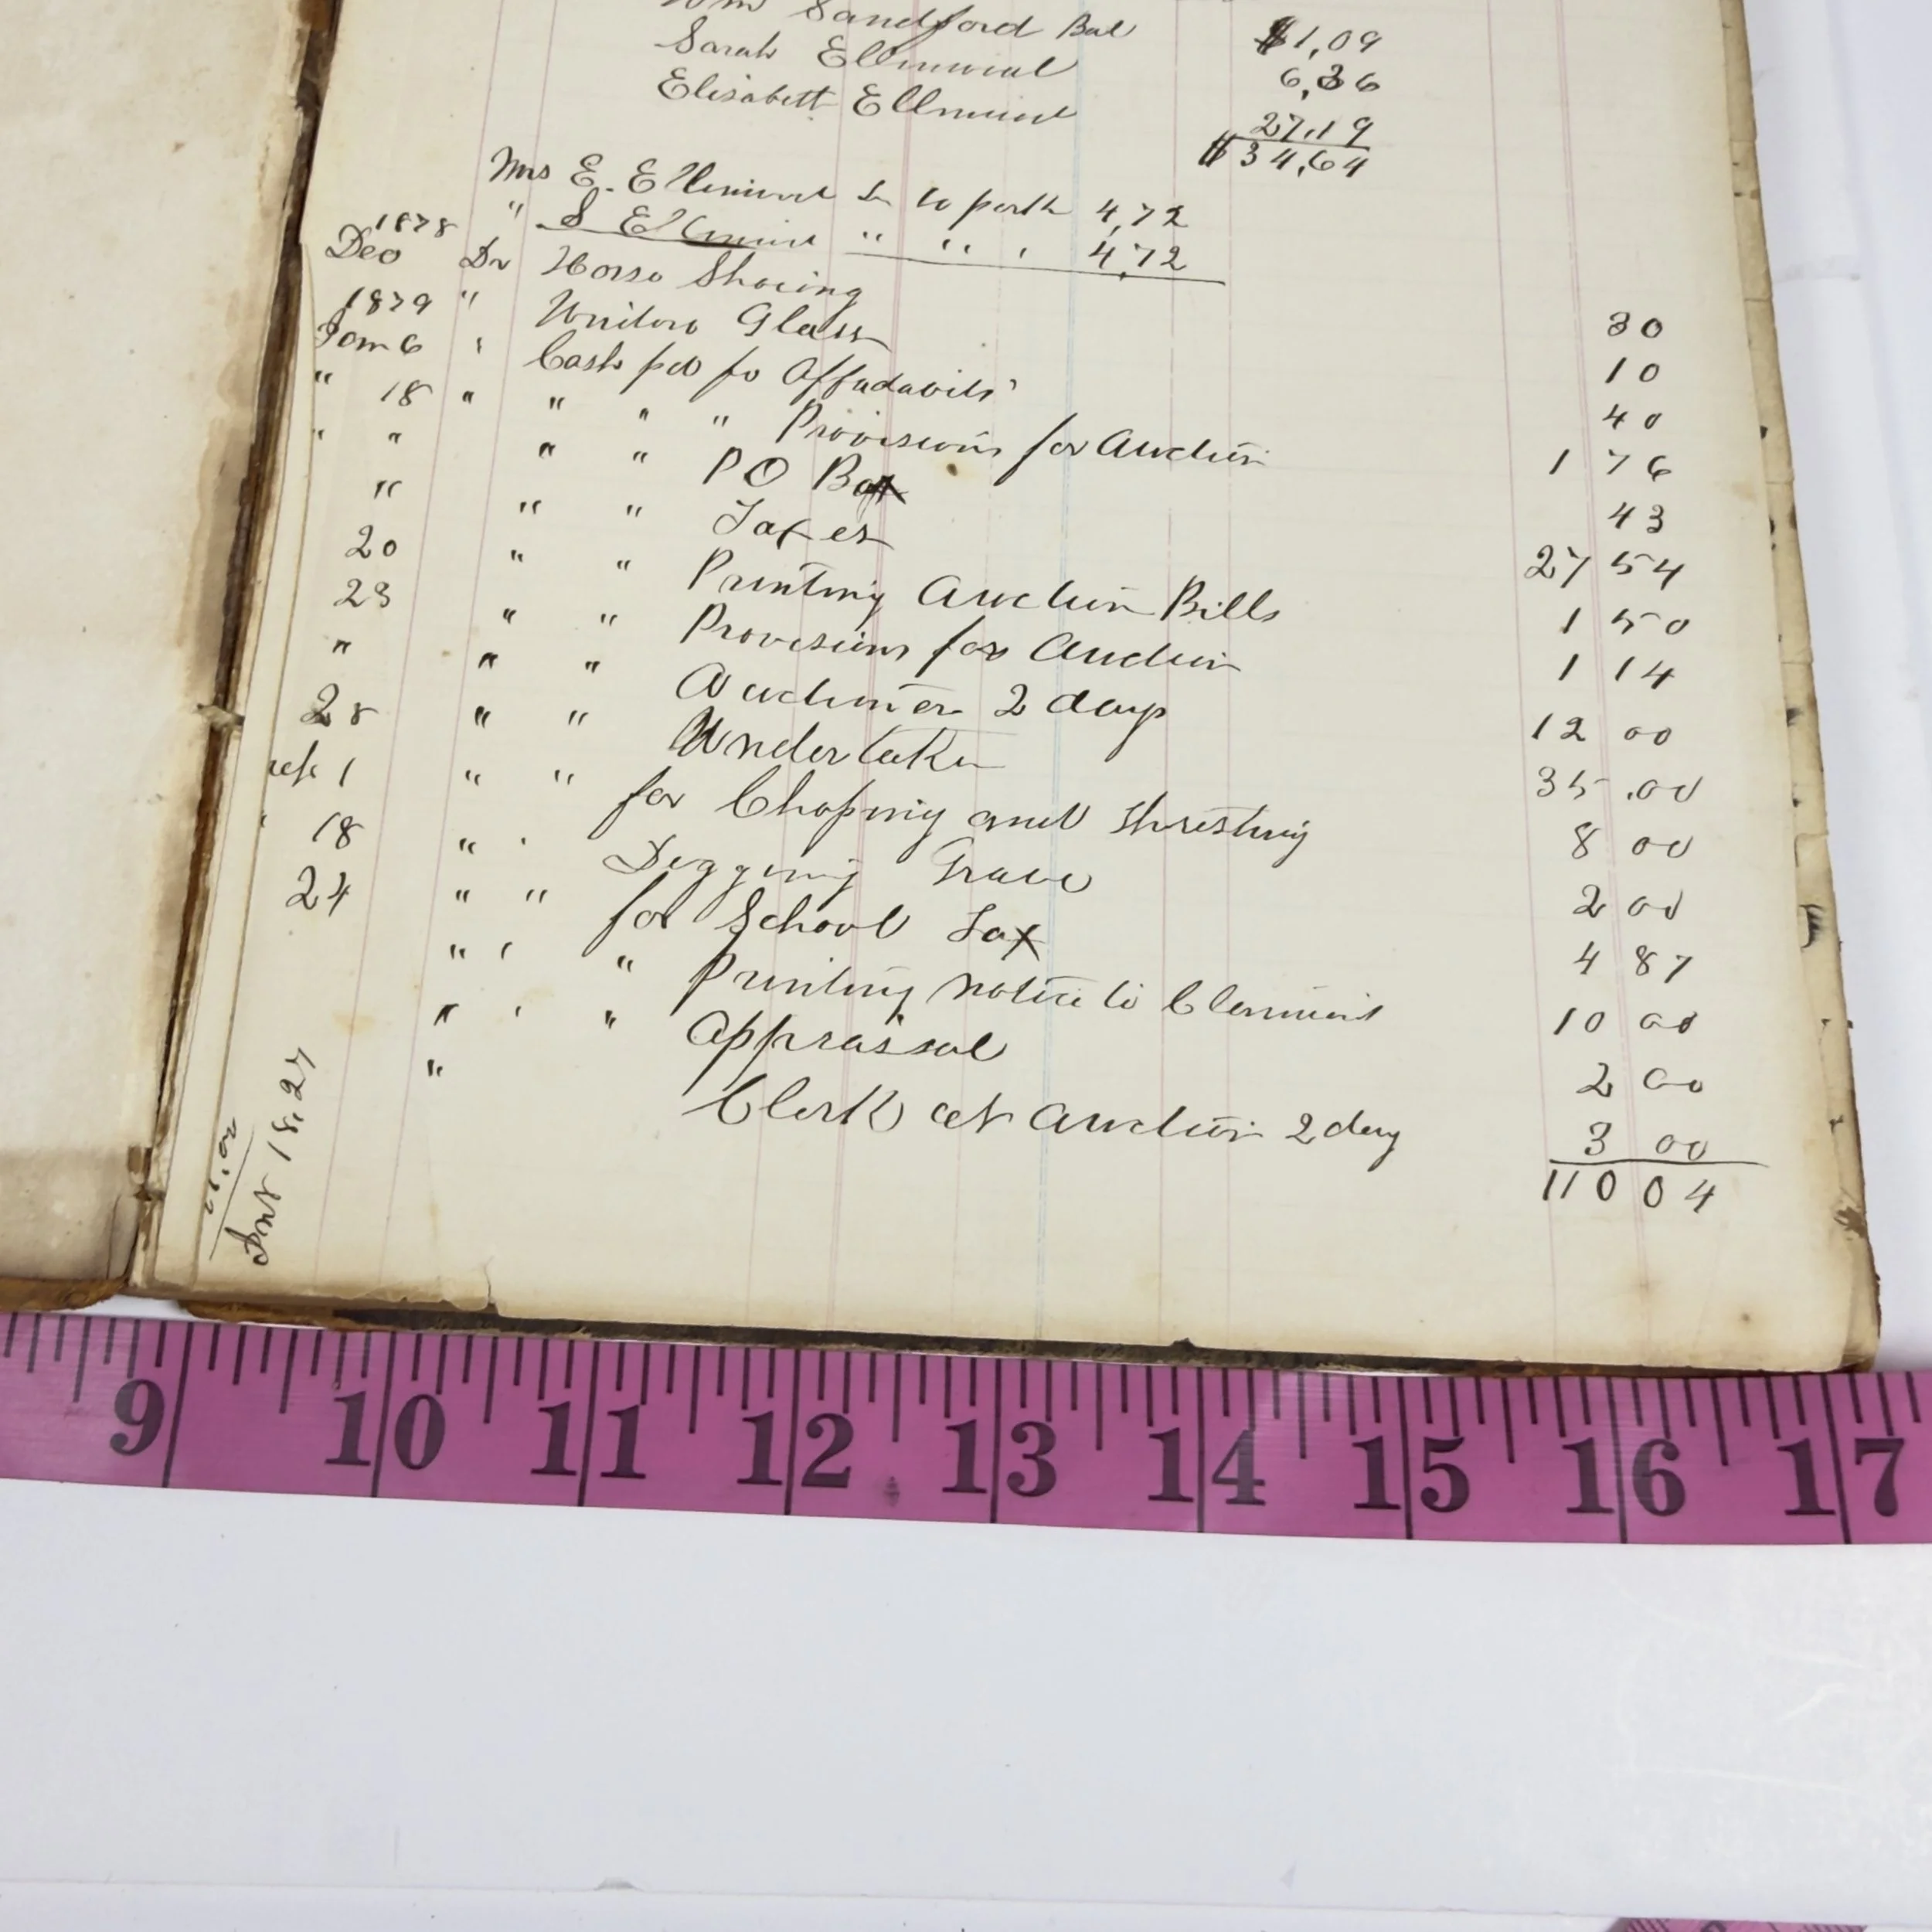 Wm Sandford Bal $1,09
Sarah Ellmund 6,36
Elisabett Ellmund 27,19
$34,64
Mrs E. Ellmund to perth 4,72
" S Ellmund " " " 4,72
1878
Deo Dr Horse Shoeing 30
1879 " Window Glass 10
Jan 6 " Cash pd fo Affadavits 40
" 18 " " " " Provisions for Auction 1 76
" " " " PO Box 43
" " " Taxes 27 54
20 " " Printing Auction Bills 1 50
23 " " Provisions for Auction 1 14
" " " Auctioner 2 days 12 00
28 " " Undertaker 35.00
1 " " for Choping and thresthing 8 00
" 18 " " Digging Grave 2 00
24 " " for School Tax 4 87
" " " Printing notice to 10 00
" " " Apprassal 2 00
" Clerk at Auction 2 day 3 00
110 04
18,27
9 10 11 12 13 14 15 16 17